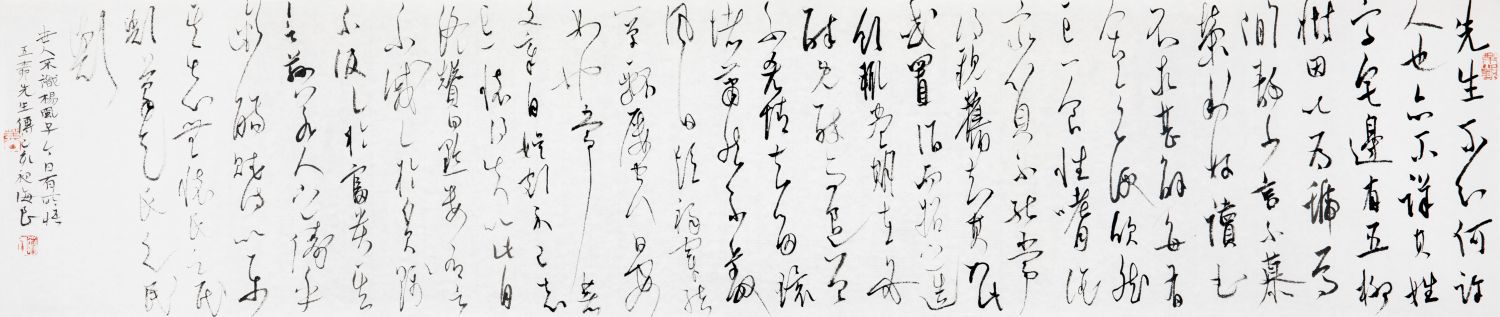 先生不知何許
人也亦不詳其姓
字宅邊有五柳
樹因以為號焉
閒静少言不慕
榮利好讀書
不求甚解每有
會意便欣然
忘食性嗜酒
家貧不能常
得親舊知其如此
或置酒而招之造
飲輒盡期在必
醉既醉而退曾
不吝情去留環
堵蕭然不蔽
風日短褐穿結
簞瓢屢空晏
如也常著
文章自娛頗示己志
忘懷得失以此自
終贊曰黔婁有言
不戚戚於貧賤
不汲汲於富貴其
言茲若人之儔乎
銜觴賦詩以樂
其志無懷氏之民
歟葛天氏之民
歟
五柳先生傳